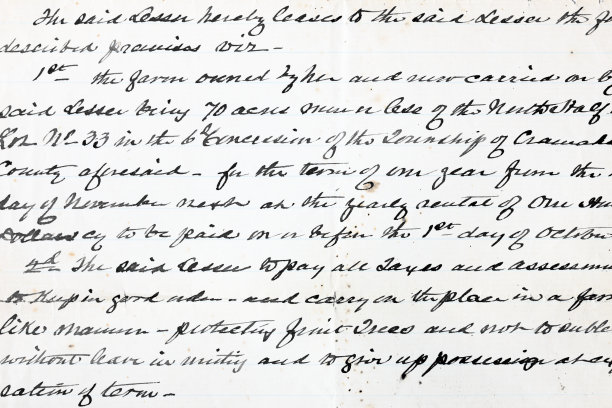 The said Lessor hereby leases to the said Lessee the
described premises viz –
1st the farm owned by her and now carried on by
said Lessee being 70 acres more or less of the North Half of
Lot No 33 in the 6th Concession of the Township of Cramahe
County aforesaid – for the term of one year from the
day of November next at the yearly rental of One
Dollars cy to be paid on or before the 1st day of October
2d The said Lessee to pay all Taxes and assessm
to Keep in good order – and carry on the place in a far
like manner – protecting fruit Trees and not to suble
without leave in writing and to give up possession at
sation of term –